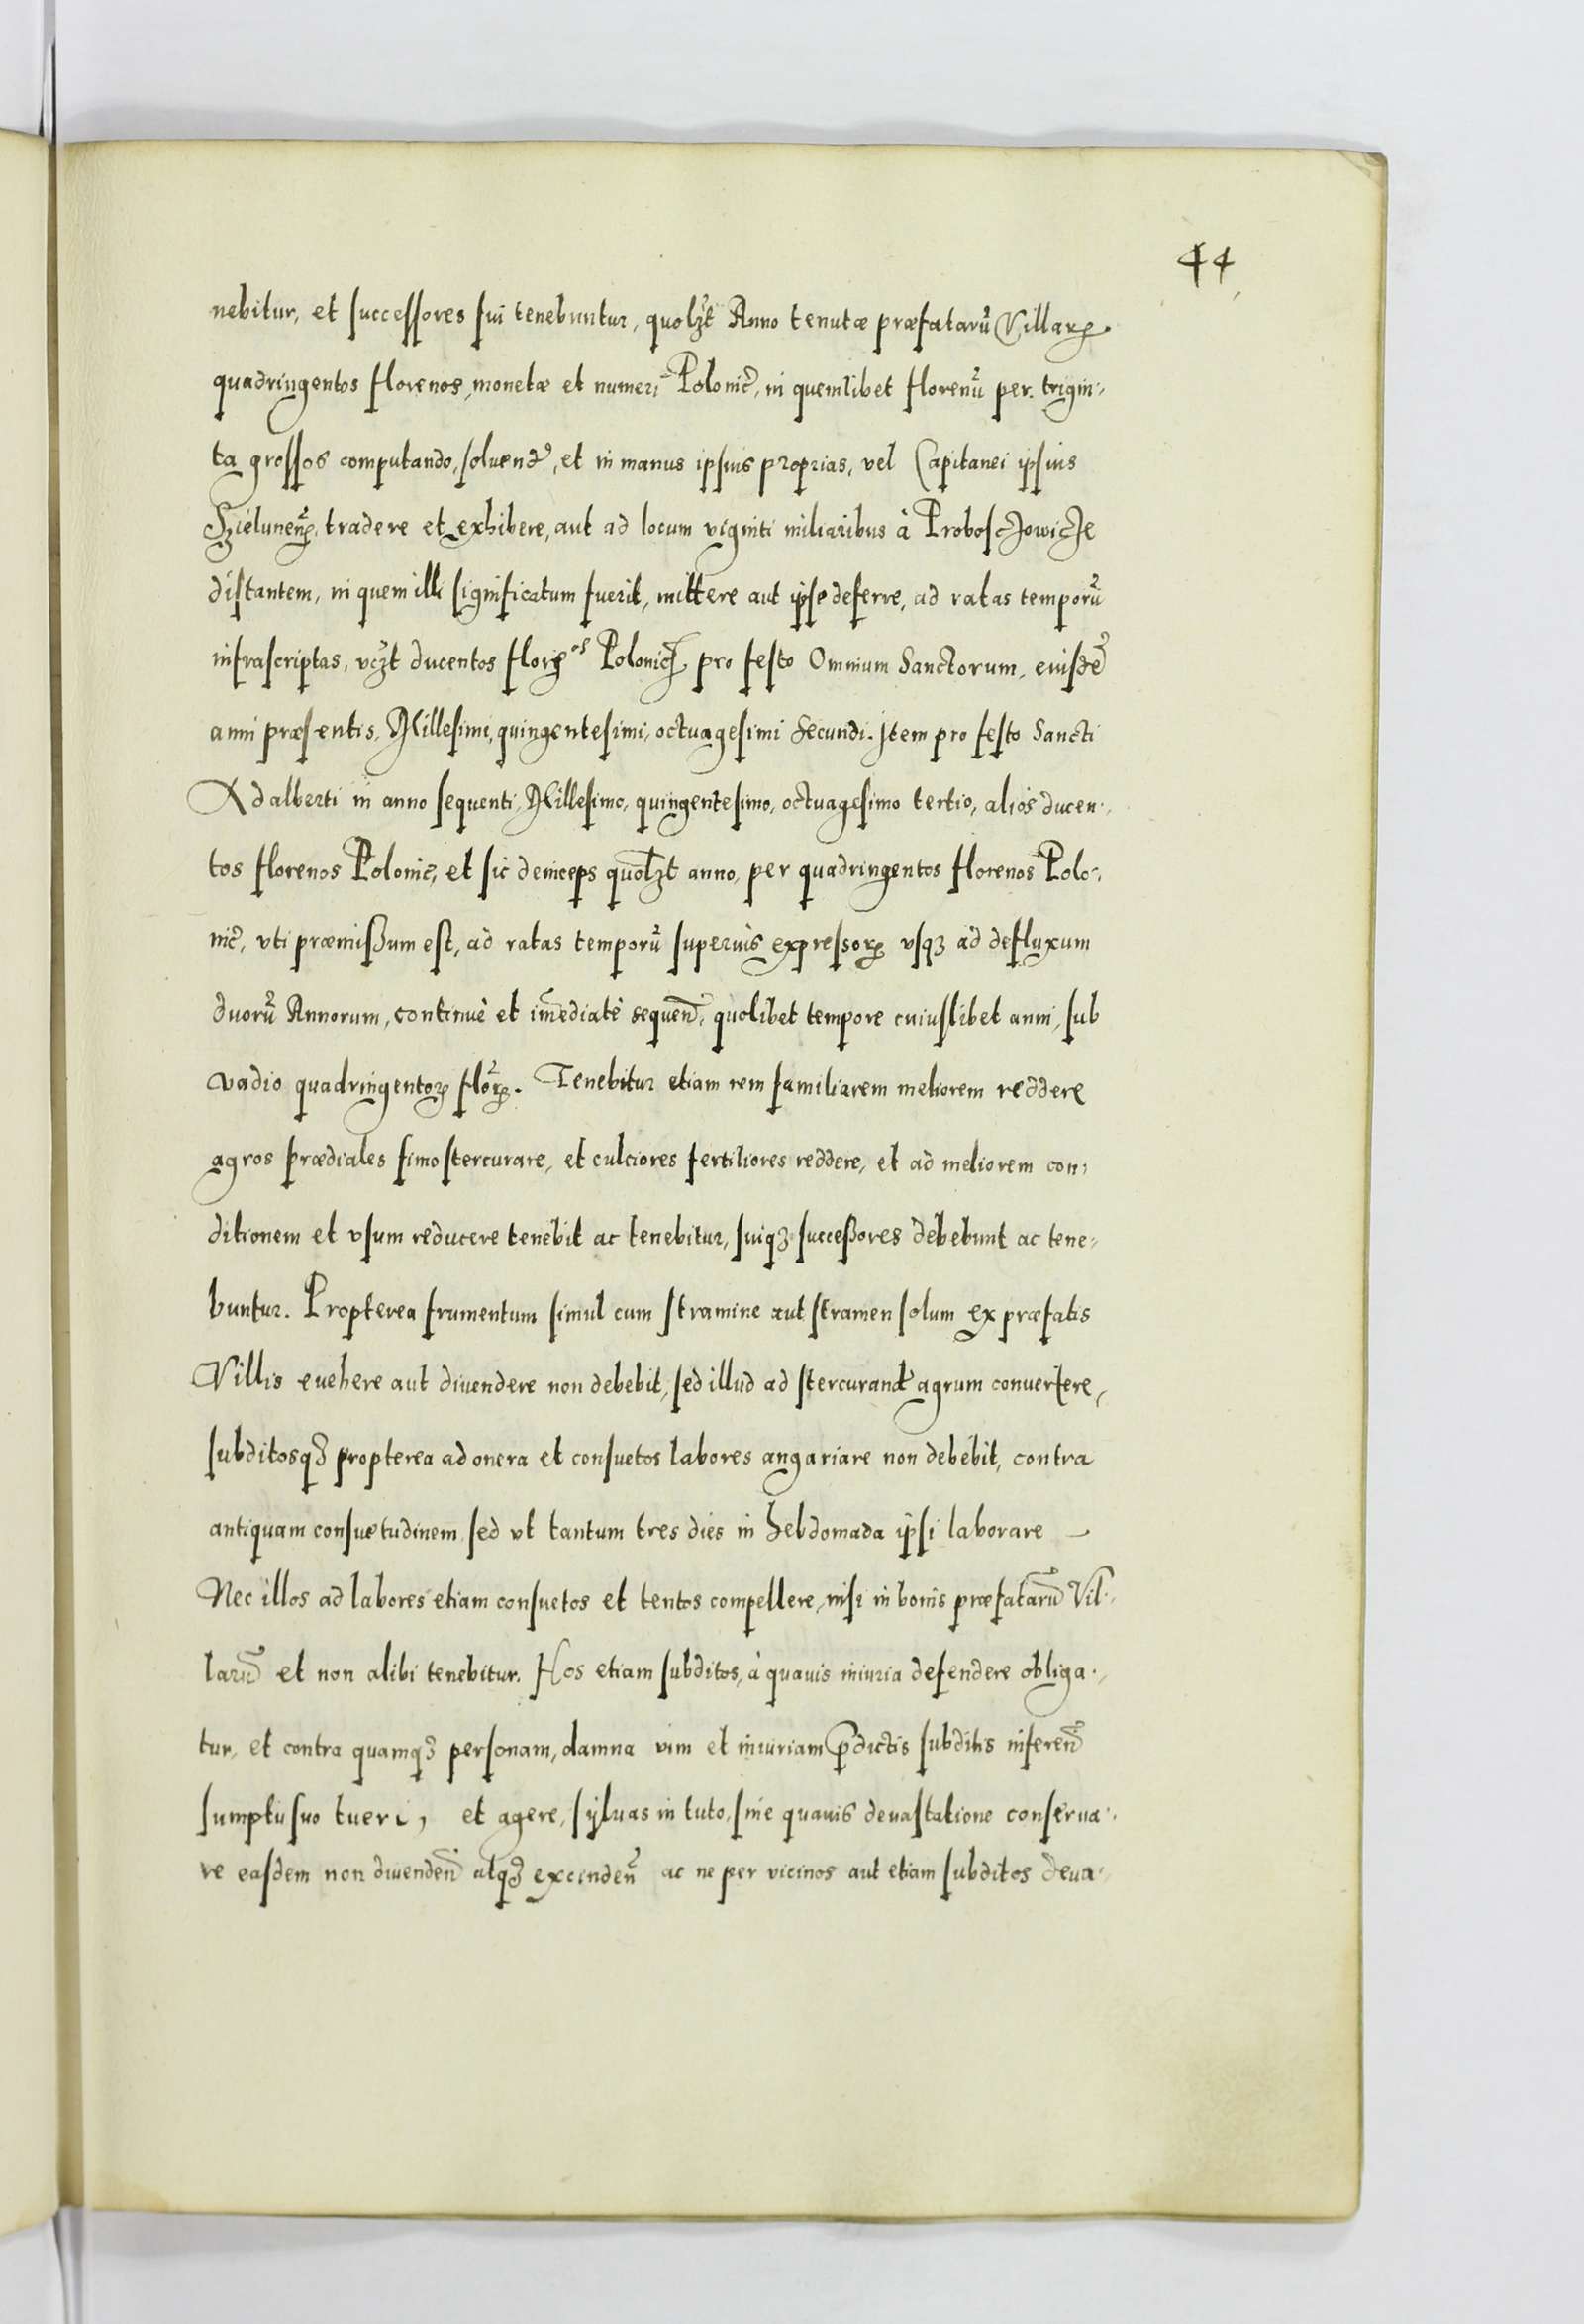 44
nebitur, et successores sui tenebuntur, quolzt Anno tenutæ præfatarũ Villarꝝ
quadringentos florenos, monetæ et numeri Polonic̃, in quemlibet florenũ per trigin-
ta grossos computando, soluend̃, et in manus ipsius proprias, vel Capitanei ipsius
tradere et exhibere, aut ad locum viginti miliaribus à Proboszczowicze
distantem, in quem illi significatum fuerit, mittere aut ipse deferre, ad ratas temporũ
infrascriptas, vczt ducentos florꝝos Polonic̃, pro festo Omnium Sanctorum, eiusdẽ
anni præsentis, Millesimi, quingentesimi, octuagesimi Secundi. Item pro festo Sancti
Adalberti in anno sequenti, Millesimo, quingentesimo, octuagesimo tertio, alios ducen-
tos florenos Polonic̃, et sic deinceps quolzt anno, per quadringentos florenos Polo-
nic̃, vti præmissum est, ad ratas temporũ superius expressorꝝ vsqꝫ ad defluxum
duorũ Annorum, continuè et im̃ediatè sequeñ, quolibet tempore cuiuslibet anni, sub
vadio quadringentorꝝ florꝝ. Tenebitur etiam rem familiarem meliorem reddere
agros prædiales fimo stercurare, et culciores fertiliores reddere, et ad meliorem con-
ditionem et vsum reducere tenebit ac tenebitur, suiqꝫ successores debebunt ac tene-
buntur. Propterea frumentum simul cum stramine aut stramen solum ex præfatis
Villis euehere aut diuendere non debebit, sed illud ad stercurand̃ agrum conuertere,
subditosqꝫ propterea ad onera et consuetos labores angariare non debebit, contra
antiquam consuetudinem sed vt tantum tres dies in hebdomada ipsi laborare –
Nec illos ad labores etiam consuetos et tentos compellere, nisi in bonis præfatarũ Vil-
larũ et non alibi tenebitur. Hos etiam subditos, à quauis iniuria defendere obliga-
tur, et contra quamqꝫ personam, damna vim et iniuriam p̃dictis subditis inferen̄
sumptu suo tueri, et agere, syluas in tuto, sine quauis deuastatione conserua-
re easdem non diuenden̄ atqꝫ excinden̄ ac ne per vicinos aut etiam subditos deua-